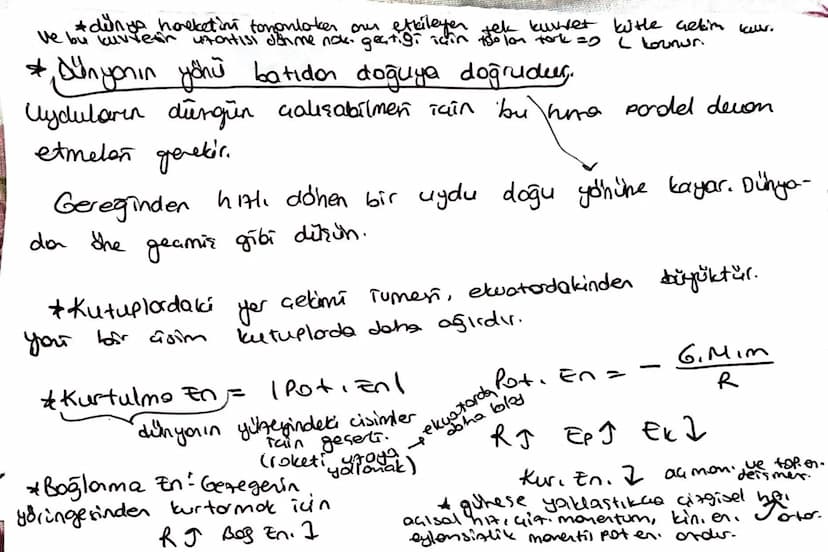 *dünya hareketini tamamlarken onu etkileyen tek kuvvet kütle çekim kuv.
ve bu kuvvetin uzantısı dönme nok. geçtiği için toplam tork => 0 bulunur.
*Dünyanın yönü batıdan doğuya doğrudur.
Uyduların durgun çalışabilmeri için bu hıza paralel devam
etmeleri gerekir.
Gereğinden hızlı dönen bir uydu doğu yönüne kayar. Dünya-
dan öne geçmiş gibi düşün.
*Kutuplardaki yer çekimi ivmesi, ekvatordakinden büyüktür.
yani bir cisim kutuplarda daha ağırdır.
*Kurtulma En = |Pot. En|
dünyanın yüzeyindeki cisimler
için geçerli.
(roketi uzaya yollamak)
→ ekvatorda daha kolay
Pot. En = - G.M.m / R
R↑ Ep↑ Ek↓
Kur. En. ↓ açı mom. ve top en. değişmez.
*Bağlanma En: Gezegenin
yörüngesinden kurtarmak için
R↑ Bağ En. ↓
*güneşe yaklaştıkça çizgisel hız,
açısal hız, çiz. momentum, kin. en. ↑ artar.
eylemsizlik momenti pot en. azalır.